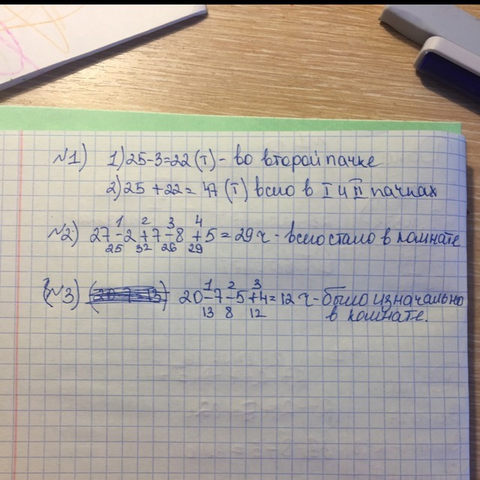 №1) 1) 25-3=22 (т) - во второй пачке
2) 25 + 22 = 47 (т) всего в I и II пачках
1 2 3 4
№2) 27-2+7-8+5=29 ч - всего стало в комнате
25 32 26 29
1 2 3
№3) 20-7-5+4=12 ч - было изначально
13 8 12 в комнате.